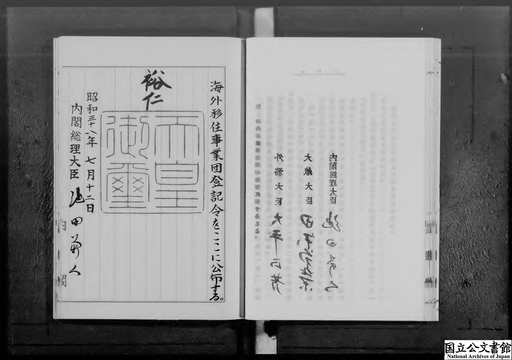 海外移住事業団登記令をここに公布する。
裕仁
天皇
御璽
昭和三十八年七月十二日
内閣総理大臣 池田勇人
内閣総理大臣 池田勇人
大蔵大臣 田中角榮
外務大臣 大平正芳
国立公文書館
National Archives of Japan